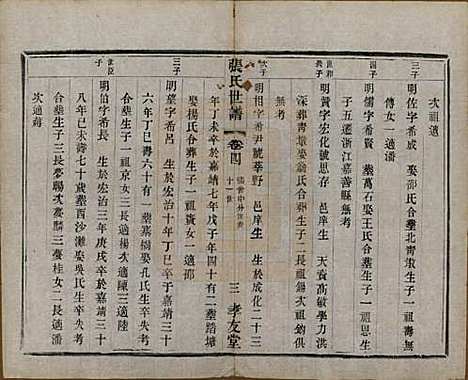 次祖適
三子
明佐字希威 娶邵氏合葬北青墩生子一祖壽無
傳女一適潘
四子
明儒字希賢 葬萬石娶王氏合葬生子一祖恩生
子五遷浙江嘉善縣無考
明賢字宏化號思存 邑庠生 天資高敏學力洪
深葬青墩娶翁氏合葬生子二長祖錫次祖鈞俱
無考
次子
明相字希尹號莘野 邑庠生 生於成化二十三
年丁未卒於嘉靖七年戊子年四十有二葬踏塘
張氏世譜 卷四
十一世
三 孝友堂
娶楊氏合葬生子一祖 女一適邵
三子
明望字希呂 生於宏治十年丁巳卒于嘉靖三十
六年丁巳壽六十有一葬嘉樹娶孔氏生卒失考
合葬生子一祖京女三長適楊次適陳三適陸
明伯字希長 生於宏治三年庚戌卒於嘉靖三十
八年己未壽七十葬西沙灘娶吳氏生卒失考
合葬生子三長夢暘次夔麟三夔桂女二長適潘
次適